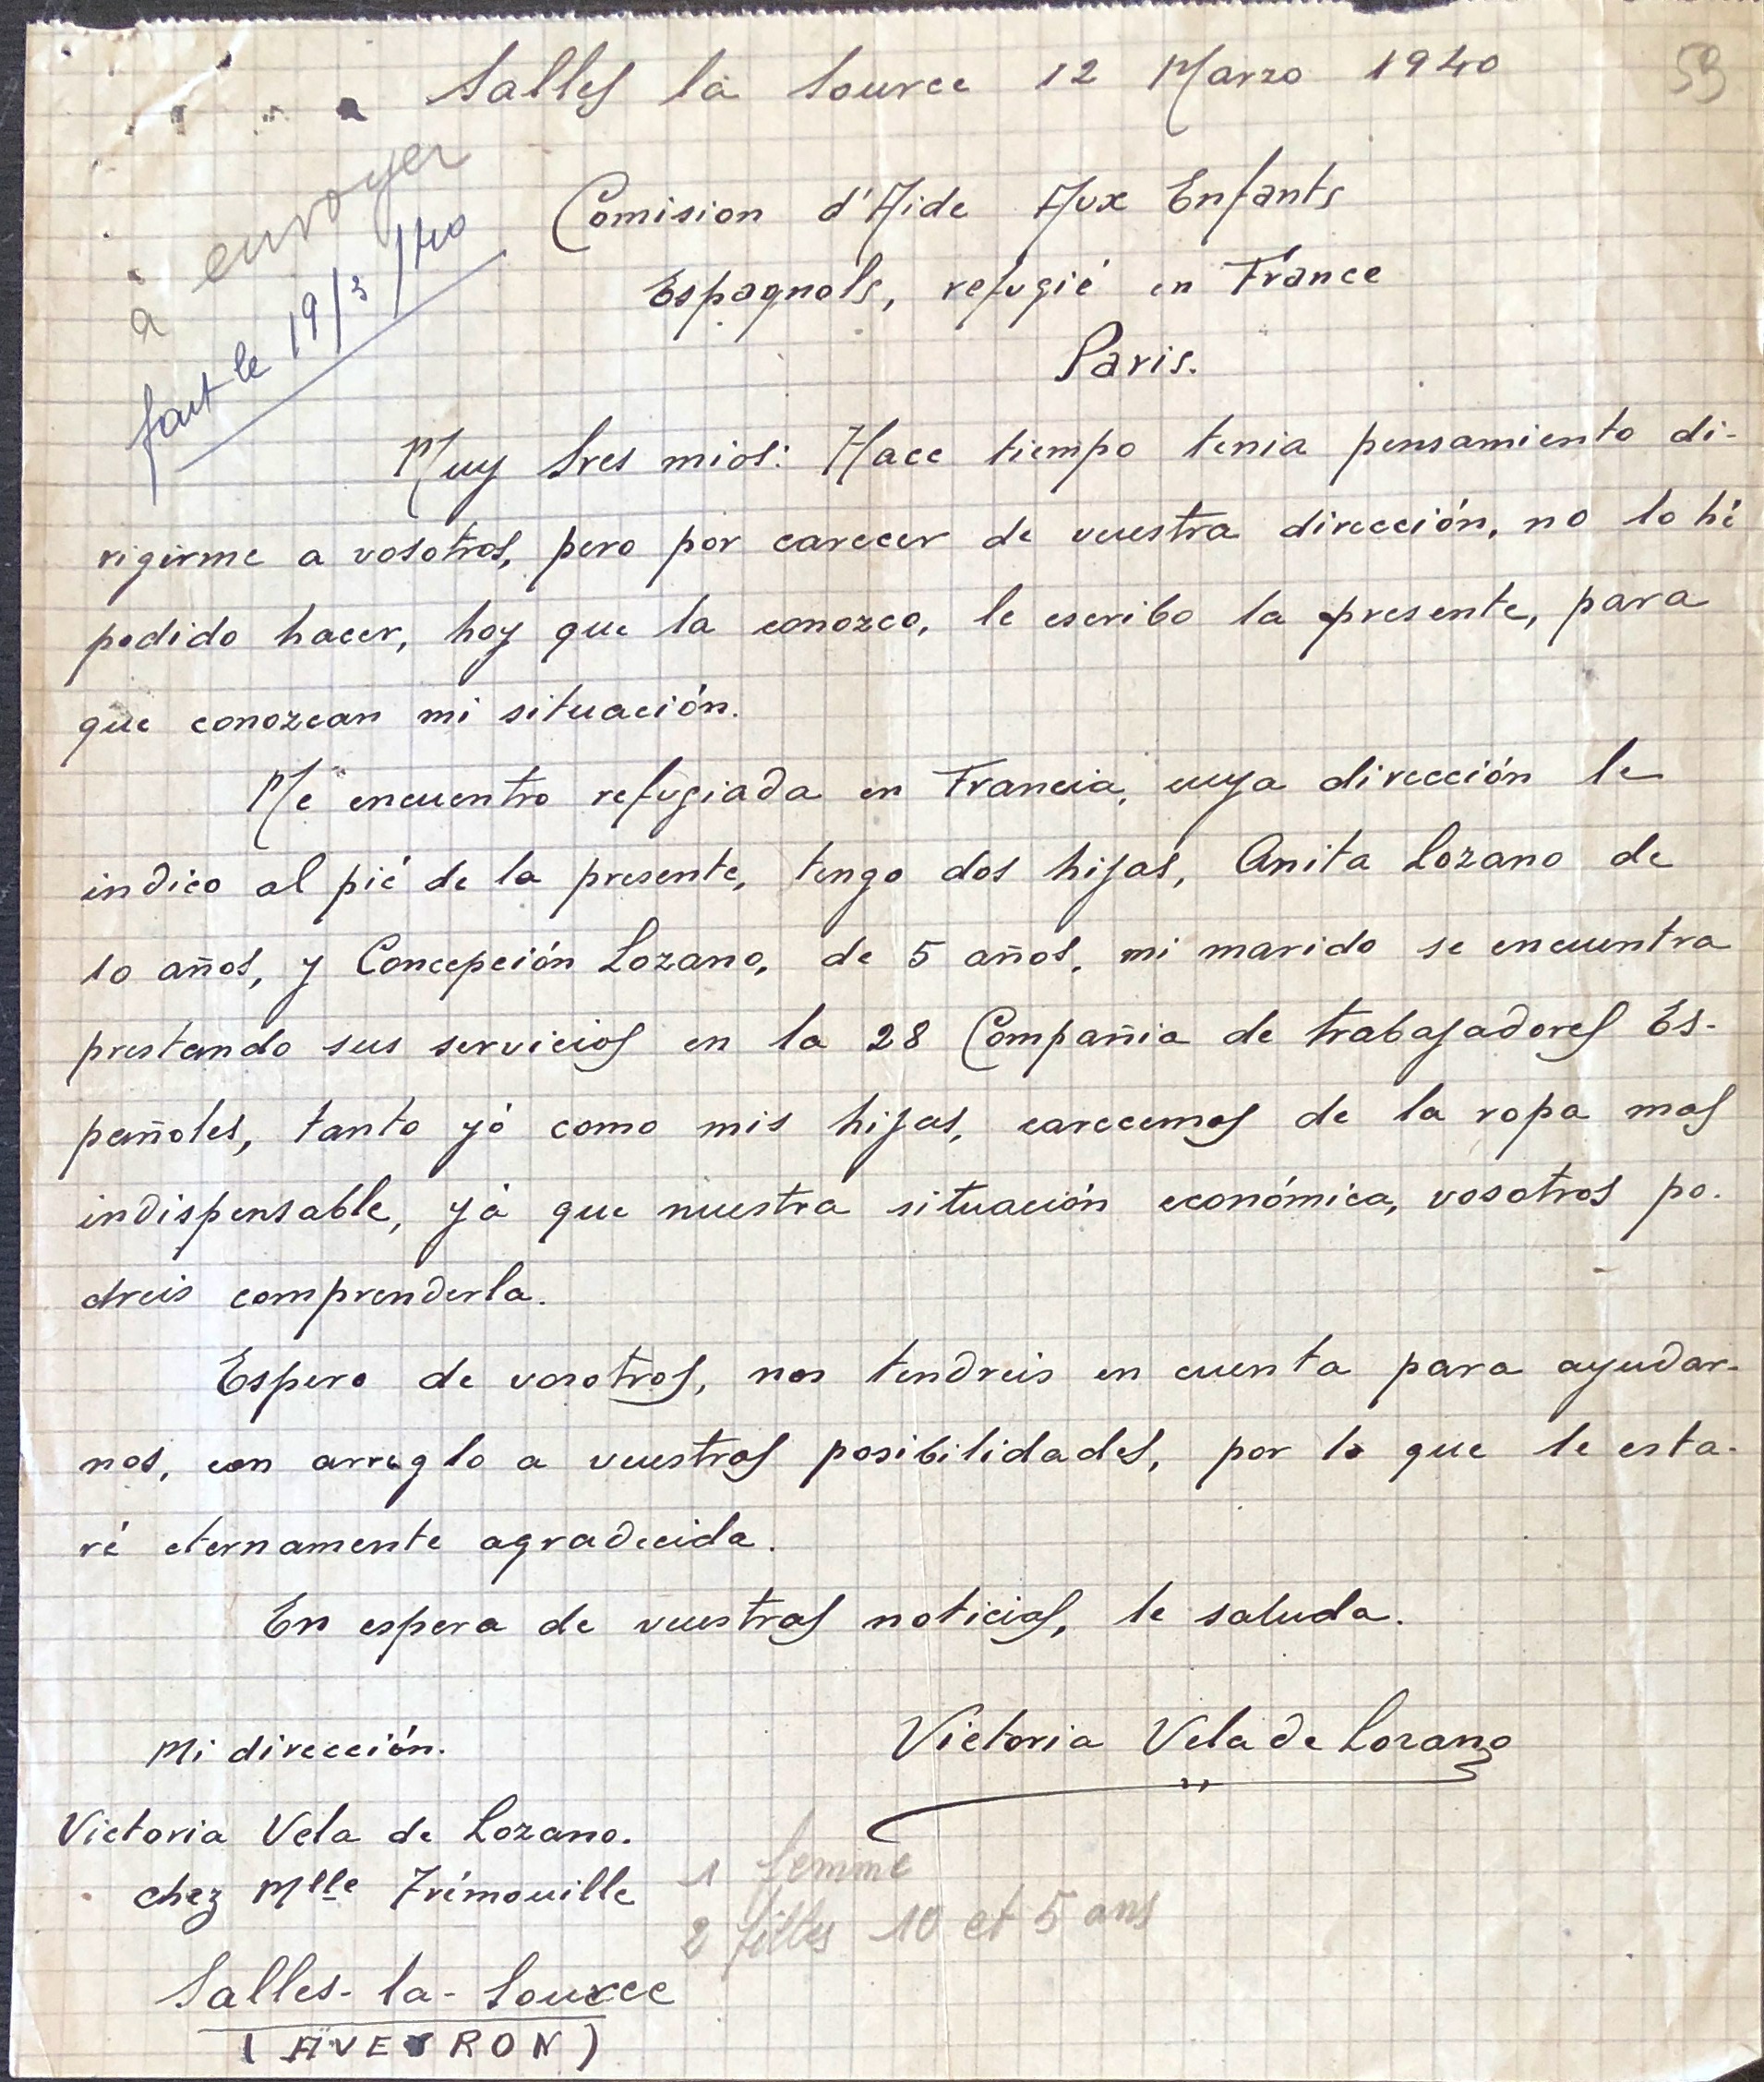 Salles la Source 12 Marzo 1940
59
à envoyer
fait le 19/3/40
Comision d'Aide Aux Enfants
Espagnols, refugié en France
Paris.
Muy Sres mios: Hace tiempo tenia pensamiento di-
rigirme a vosotros, pero por carecer de vuestra dirección, no lo hé
podido hacer, hoy que la conozco, le escribo la presente, para
que conozcan mi situación.
Me encuentro refugiada en Francia, cuya dirección le
indico al pié de la presente, tengo dos hijas, Anita Lozano de
10 años, y Concepción Lozano, de 5 años, mi marido se encuentra
prestando sus servicios en la 28 Compañia de trabajadores Es-
pañoles, tanto yó como mis hijas, carecemos de la ropa mas
indispensable, yá que nuestra situación económica, vosotros po-
dreis comprenderla.
Espero de vosotros, nos tendreis en cuenta para ayudar-
nos, con arreglo a vuestras posibilidades, por lo que le esta-
ré eternamente agradecida.
En espera de vuestras noticias, le saluda.
Victoria Vela de Lozano
Mi dirección.
Victoria Vela de Lozano.
chez Mlle Trémouille
Salles-la-Source
(AVEYRON)
1 femme
2 filles 10 et 5 ans